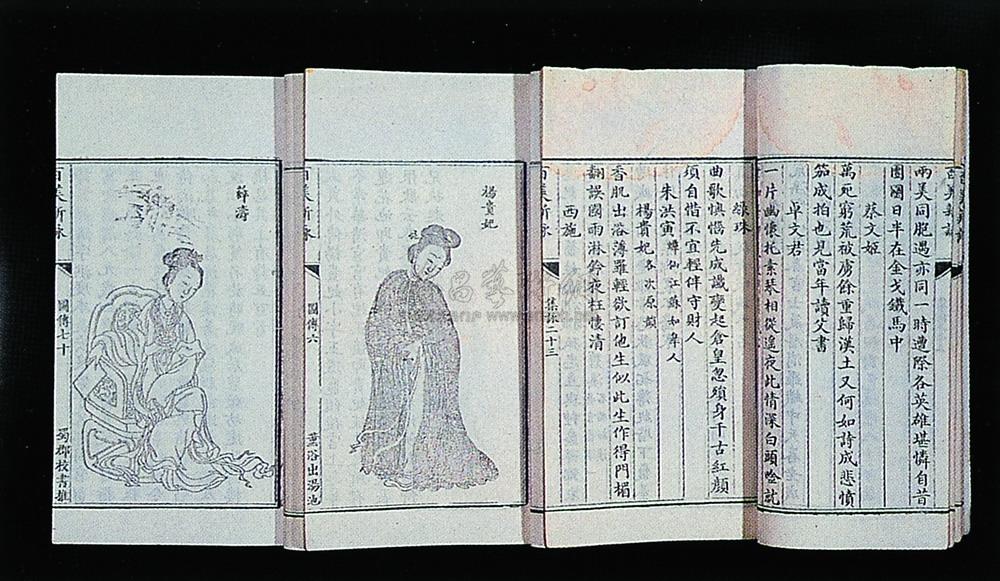 百美新詠
兩美同胞遇亦同一時遭際各英雄堪憐自昔
團圞日半在金戈鐵馬中
蔡文姬
萬死窮荒被虜餘重歸漢土又何如詩成悲憤
笳成拍也見當年讀父書
卓文君
一片幽懷托素琴相從遑夜此情深白頭唫就
綠珠
曲歌懊惱先成讖變起倉皇忽殞身千古紅顏
須自惜不宜輕伴守財人
朱洪寅
江蘇如皋人
楊貴妃各次原韻
香肌出浴薄羅輕欲訂他生似此生作得門楣
翻誤國雨淋鈴夜枉悽清
西施
集詠二十三
楊貴妃
百美新詠
圖傳六
薰浴出湯池
薛濤
百美新詠
圖傳七十
蜀郡校書推